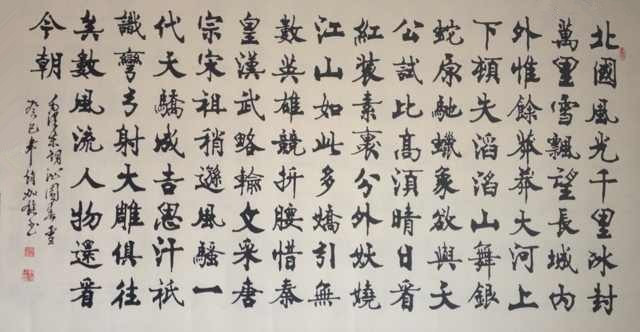 北國風光千里冰封
萬里雪飄望長城内
外惟餘莽莽大河上
下頓失滔滔山舞銀
蛇原馳蠟象欲與天
公試比高須晴日看
紅裝素裹分外妖嬈
江山如此多嬌引無
數英雄競折腰惜秦
皇漢武略輸文采唐
宗宋祖稍遜風騷一
代天驕成吉思汗祇
識彎弓射大雕俱往
矣數風流人物還看
今朝
毛澤東詞沁園春雪
癸巳年